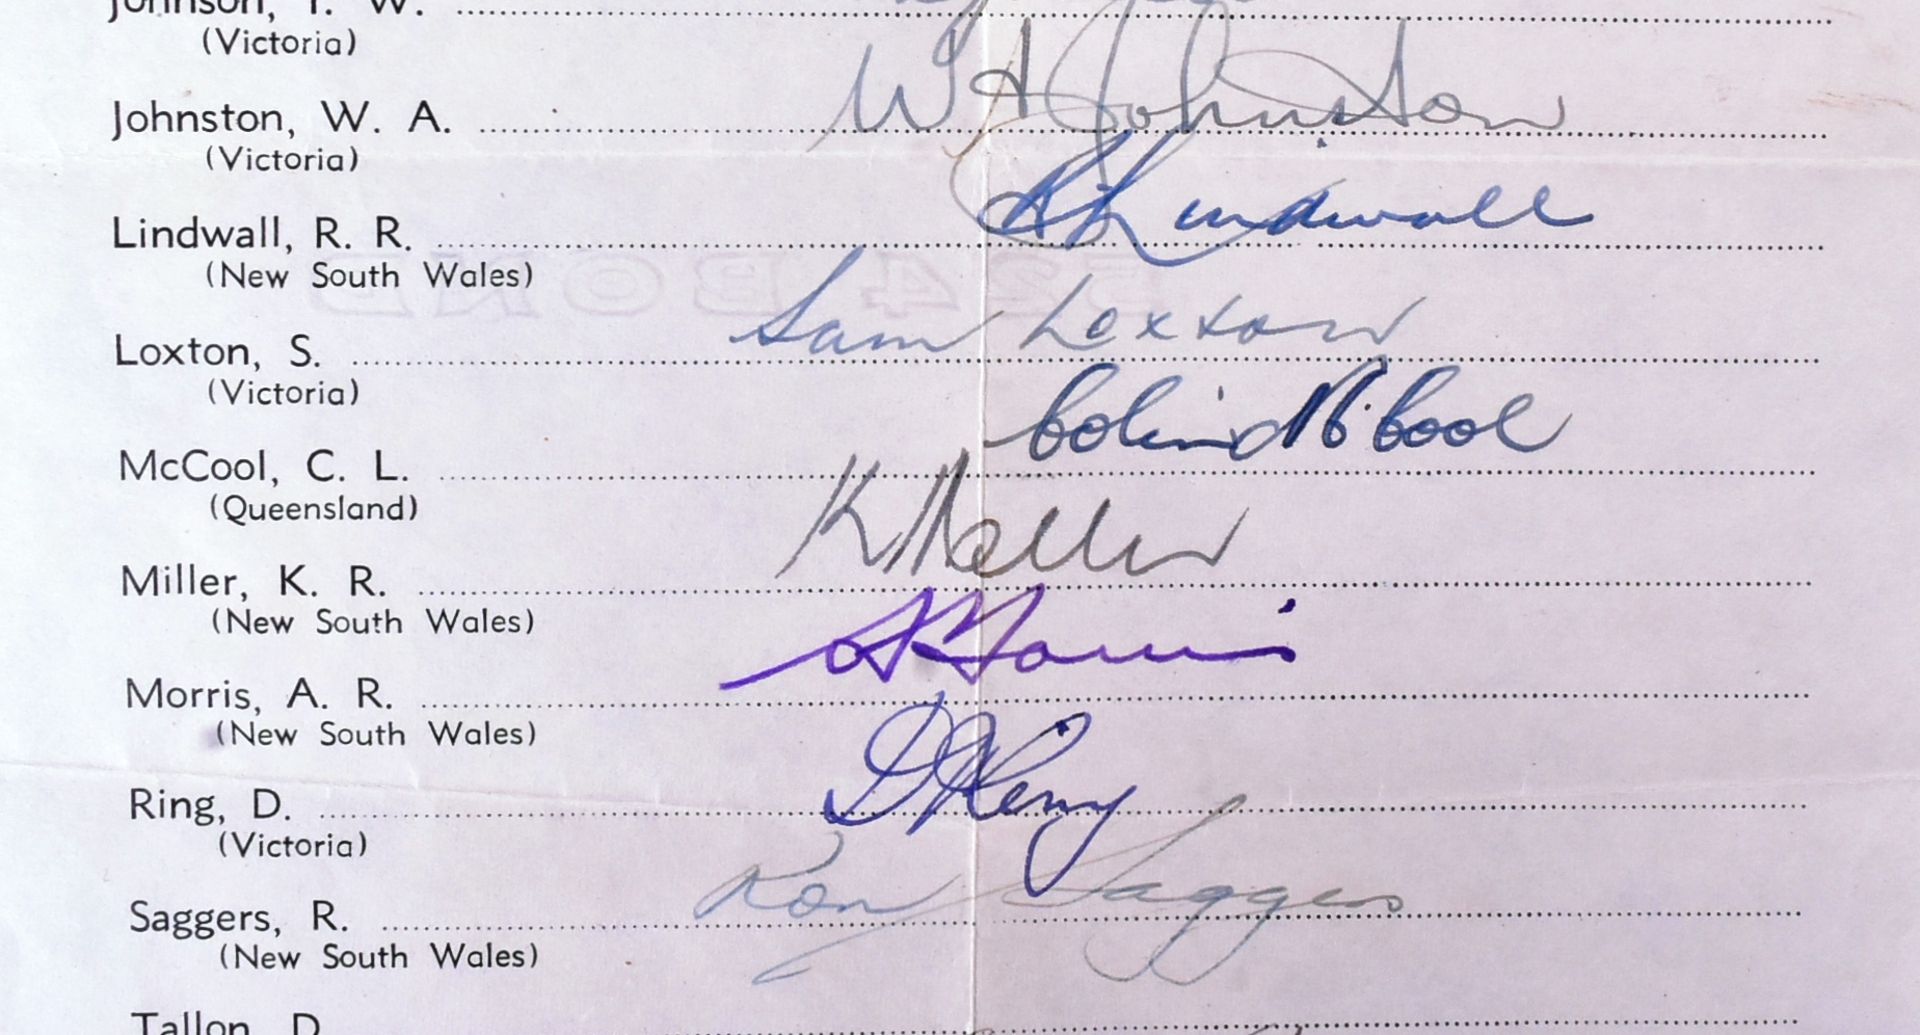 Johnson, I. W.
(Victoria)
Johnston, W. A. W A Johnston
(Victoria)
Lindwall, R. R. R R Lindwall
(New South Wales)
Loxton, S. Sam Loxton
(Victoria)
McCool, C. L. Colin McCool
(Queensland)
Miller, K. R. K Miller
(New South Wales)
Morris, A. R. A Morris
(New South Wales)
Ring, D. D Ring
(Victoria)
Saggers, R. Ron Saggers
(New South Wales)
Tallon, D.